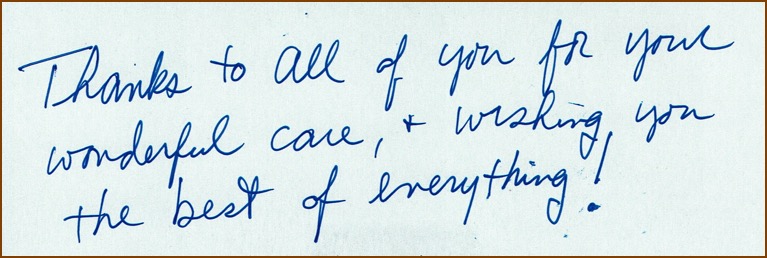 Thanks to all of you for your
wonderful care, + wishing you
the best of everything!